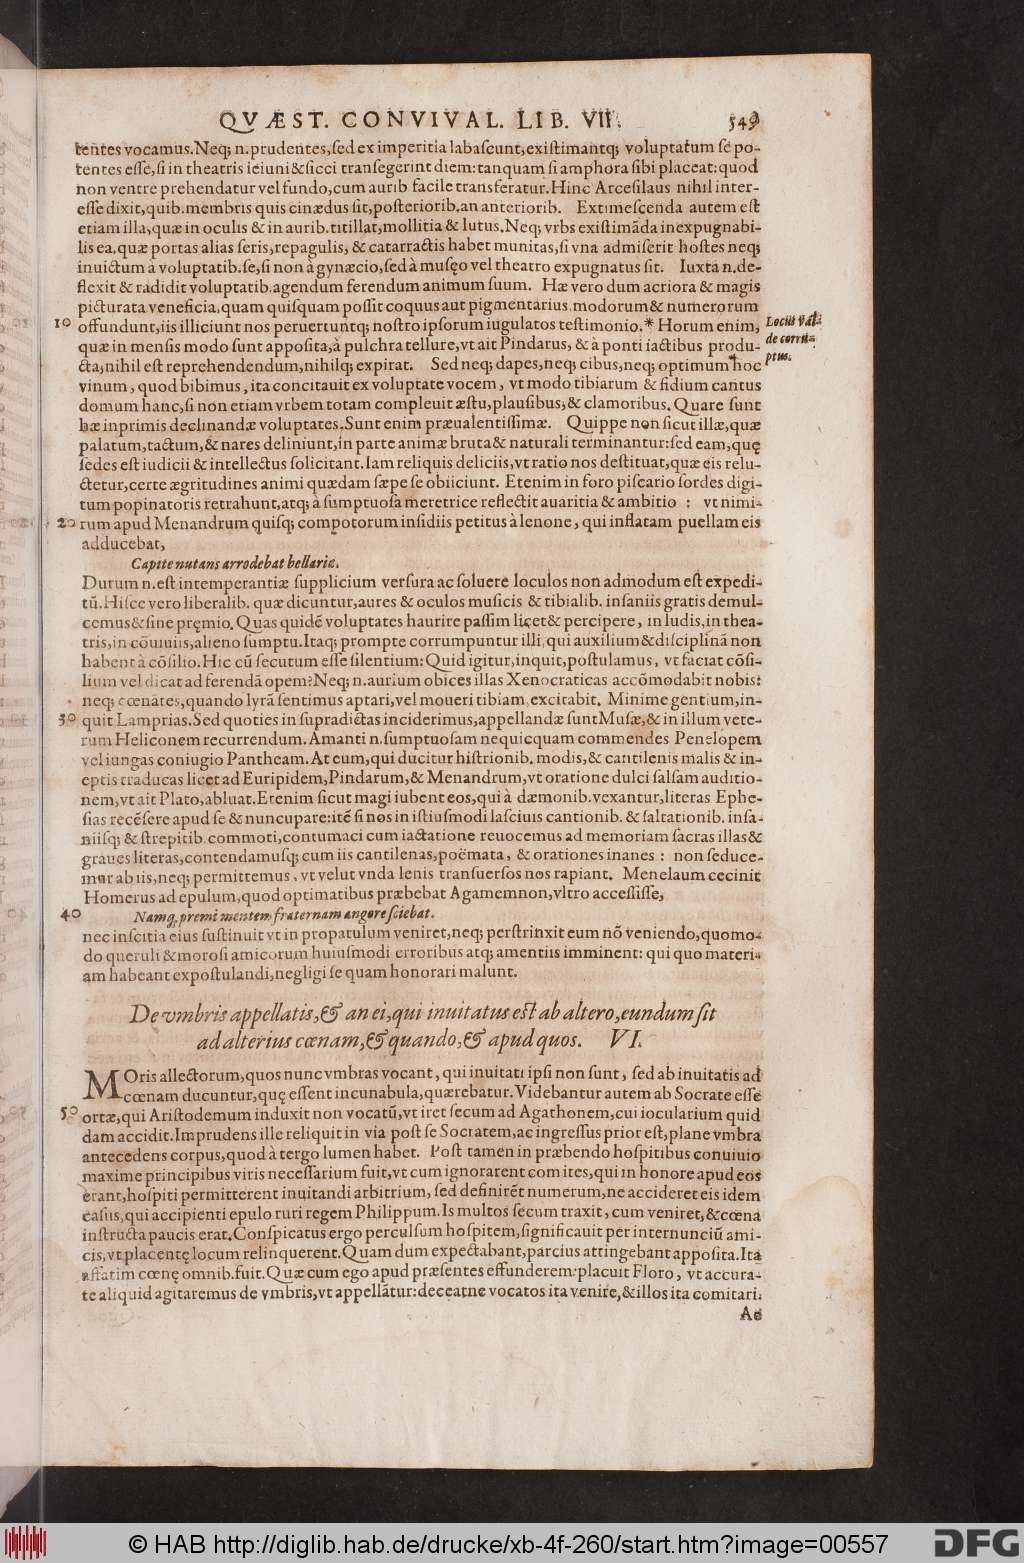 QVÆST. CONVIVAL. LIB. VII. 549
tentes vocamus. Neq; n. prudentes, sed ex imperitia labascunt, existimantq; voluptatum se po-
tentes esse, si in theatris ieiuni & sicci transegerint diem: tanquam si amphora sibi placeat: quod
non ventre prehendatur vel fundo, cum aurib facile transferatur. Hinc Arcesilaus nihil inter-
esse dixit, quib. membris quis cinædus sit, posteriorib. an anteriorib. Extimescenda autem est
etiam illa, quæ in oculis & in aurib. titillat, mollitia & lutus. Neq; vrbs existimãda inexpugnabi-
lis ea, quæ portas alias seris, repagulis, & catarractis habet munitas, si vna admiserit hostes neq;
inuictum à voluptatib. se, si non à gynæcio, sed à musęo vel theatro expugnatus sit. Iuxta n. de-
flexit & radidit voluptatib. agendum ferendum animum suum. Hæ vero dum acriora & magis
picturata veneficia, quam quisquam possit coquus aut pigmentarius, modorum & numerorum
10 offundunt, iis illiciunt nos peruertuntq; nostro ipsorum iugulatos testimonio. * Horum enim, Locus val-
quæ in mensis modo sunt apposita, à pulchra tellure, vt ait Pindarus, & à ponti iactibus produ- de corru-
cta, nihil est reprehendendum, nihilq; expirat. Sed neq; dapes, neq; cibus, neq; optimum hoc ptus.
vinum, quod bibimus, ita concitauit ex voluptate vocem, vt modo tibiarum & fidium cantus
domum hanc, si non etiam vrbem totam compleuit æstu, plausibus, & clamoribus. Quare sunt
hæ inprimis declinandæ voluptates. Sunt enim præualentissimæ. Quippe non sicut illæ, quæ
palatum, tactum, & nares deliniunt, in parte animæ bruta & naturali terminantur: sed eam, quę
sedes est iudicii & intellectus solicitant. Iam reliquis deliciis, vt ratio nos destituat, quæ eis relu-
ctetur, certe ægritudines animi quædam sæpe se obiiciunt. Etenim in foro piscario sordes digi-
tum popinatoris retrahunt, atq; à sumptuosa meretrice reflectit auaritia & ambitio : vt nimi-
20 rum apud Menandrum quisq; compotorum insidiis petitus à lenone, qui inflatam puellam eis
adducebat,
Capite nutans arrodebat bellaria.
Durum n. est intemperantiæ supplicium versura ac soluere loculos non admodum est expedi-
tũ. Hisce vero liberalib. quæ dicuntur, aures & oculos musicis & tibialib. insaniis gratis demul-
cemus & sine pręmio. Quas quidẽ voluptates haurire passim licet & percipere, in ludis, in thea-
tris, in cõuiuiis, alieno sumptu. Itaq; prompte corrumpuntur illi, qui auxilium & disciplinã non
habent à cõsilio. Hic cũ secutum esse silentium: Quid igitur, inquit, postulamus, vt faciat cõsi-
lium vel dicat ad ferendã opem? Neq; n. aurium obices illas Xenocraticas accõmodabit nobis:
neq; cœnãtes, quando lyrã sentimus aptari, vel moueri tibiam, excitabit. Minime gentium, in-
30 quit Lamprias. Sed quoties in supradictas inciderimus, appellandæ sunt Musæ, & in illum vete-
rum Heliconem recurrendum. Amanti n. sumptuosam nequicquam commendes Penelopem
vel iungas coniugio Pantheam. At eum, qui ducitur histrionib. modis, & cantilenis malis & in-
eptis traducas licet ad Euripidem, Pindarum, & Menandrum, vt oratione dulci salsam auditio-
nem, vt ait Plato, abluat. Etenim sicut magi iubent eos, qui à dæmonib. vexantur, literas Ephe-
sias recẽsere apud se & nuncupare: itẽ si nos in istiusmodi lasciuis cantionib. & saltationib. insa-
niisq; & strepitib. commoti, contumaci cum iactatione reuocemus ad memoriam sacras illas &
graues literas, contendamusq; cum iis cantilenas, poëmata, & orationes inanes : non seduce-
mur ab iis, neq; permittemus, vt velut vnda lenis transuersos nos rapiant. Menelaum cecinit
Homerus ad epulum, quod optimatibus præbebat Agamemnon, vltro accessisse,
40 Namq; premi mentem fraternam angore sciebat.
nec inscitia eius sustinuit vt in propatulum veniret, neq; perstrinxit eum nõ veniendo, quomo-
do queruli & morosi amicorum huiusmodi erroribus atq; amentiis imminent: qui quo materi-
am habeant expostulandi, negligi se quam honorari malunt.
De vmbris appellatis, & an ei, qui inuitatus est ab altero, eundum sit
ad alterius cœnam, & quando, & apud quos. VI.
MOris allectorum, quos nunc vmbras vocant, qui inuitati ipsi non sunt, sed ab inuitatis ad
cœnam ducuntur, quę essent incunabula, quærebatur. Videbantur autem ab Socrate esse
50 ortæ, qui Aristodemum induxit non vocatũ, vt iret secum ad Agathonem, cui iocularium quid
dam accidit. Imprudens ille reliquit in via post se Socratem, ac ingressus prior est, plane vmbra
antecedens corpus, quod à tergo lumen habet. Post tamen in præbendo hospitibus conuiuio
maxime principibus viris necessarium fuit, vt cum ignorarent comites, qui in honore apud eos
erant, hospiti permitterent inuitandi arbitrium, sed definirẽt numerum, ne accideret eis idem
casus, qui accipienti epulo ruri regem Philippum. Is multos secum traxit, cum veniret, & cœna
instructa paucis erat. Conspicatus ergo perculsum hospitem, significauit per internunciũ ami-
cis, vt placentę locum relinquerent. Quam dum expectabant, parcius attingebant apposita. Ita
affatim cœnę omnib. fuit. Quæ cum ego apud præsentes effunderem: placuit Floro, vt accura-
te aliquid agitaremus de vmbris, vt appellãtur: deceatne vocatos ita venire, & illos ita comitari.
Ac
© HAB http://diglib.hab.de/drucke/xb-4f-260/start.htm?image=00557
DFG